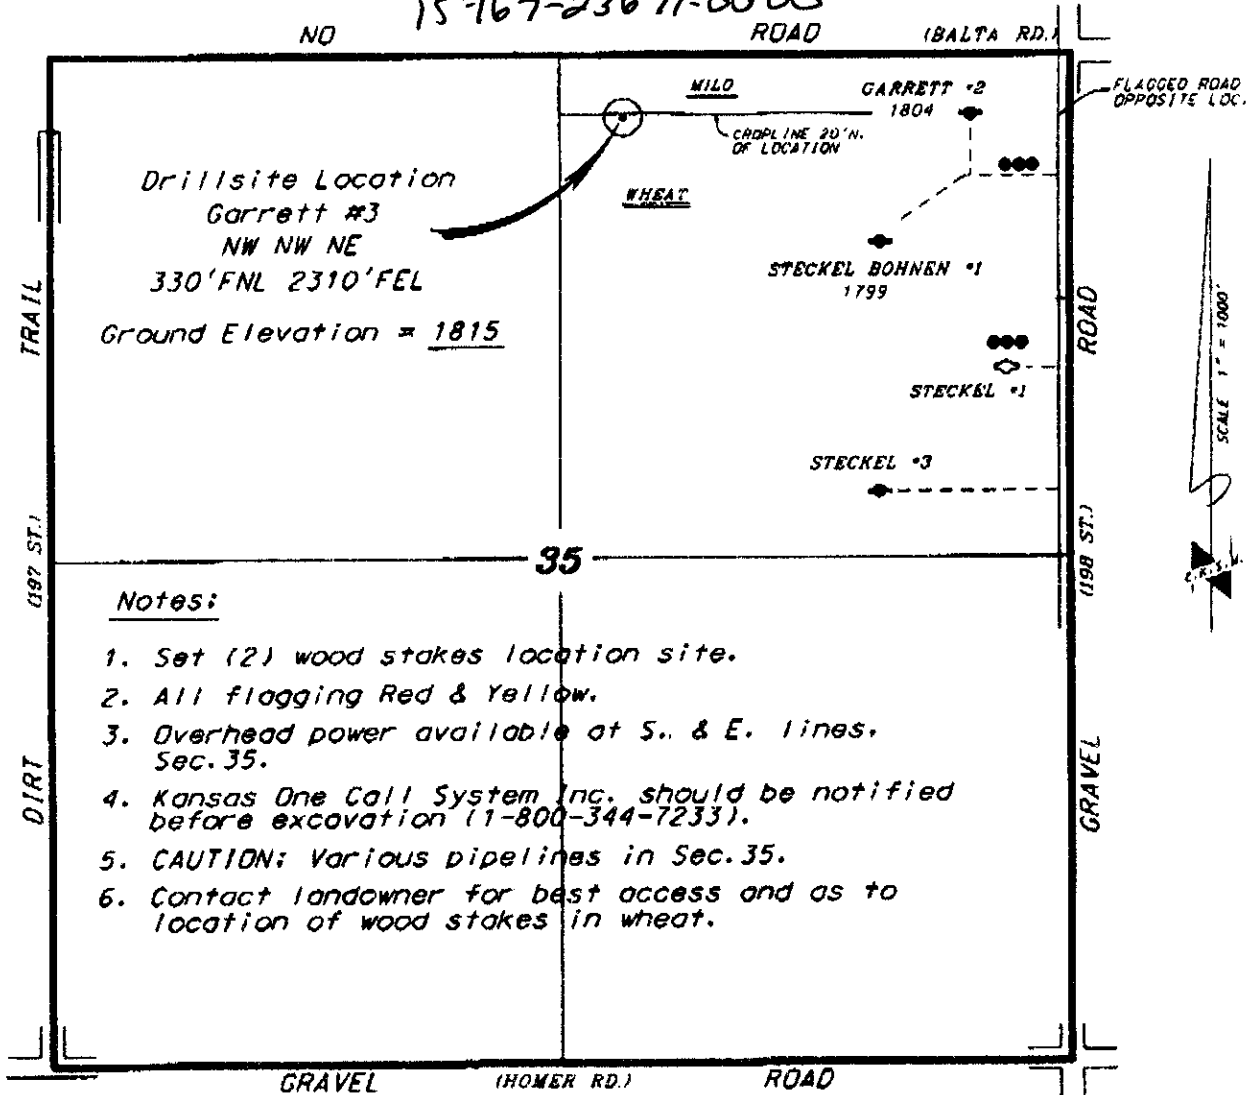 NO ROAD (BALTA RD.)
MILO
GARRETT #2
1804
FLAGGED ROAD
OPPOSITE LOC.
CROPLINE 20'N.
OF LOCATION
Drillsite Location
Garrett #3
NW NW NE
330'FNL 2310'FEL
Ground Elevation = 1815
WHEAT
STECKEL BOHNEN #1
1799
STECKEL #1
STECKEL #3
DIRT (197 ST.) TRAIL
GRAVEL (198 ST.) ROAD
SCALE 1" = 1000'
35
Notes:
1. Set (2) wood stakes location site.
2. All flagging Red & Yellow.
3. Overhead power available at S. & E. lines,
Sec. 35.
4. Kansas One Call System Inc. should be notified
before excavation (1-800-344-7233).
5. CAUTION: Various pipelines in Sec. 35.
6. Contact landowner for best access and as to
location of wood stakes in wheat.
GRAVEL (HOMER RD.) ROAD